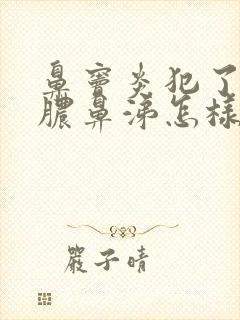 鼻窦炎犯了
脓鼻涕怎樣
嚴子晴